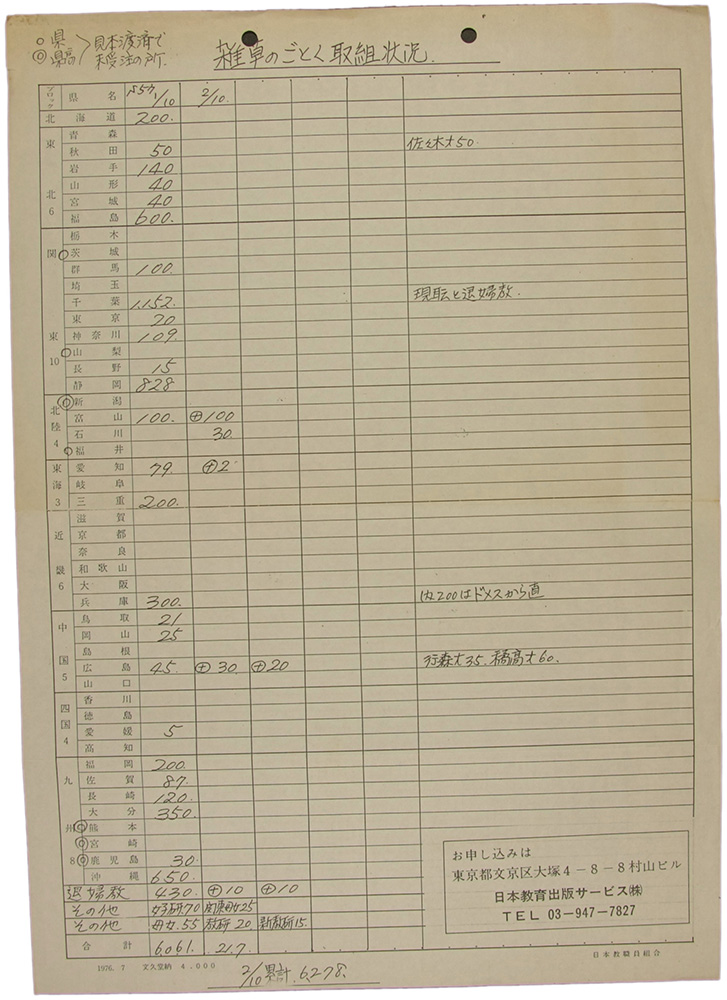 ○ 県
◎ 県高 〉見本渡済で
未受注の所.
雑草のごとく取組状況.
ブロック 県名 S57 1/10 2/10.
北海道 200.
東北6
青森
秋田 50 佐々木大50.
岩手 140
山形 40
宮城 40
福島 600.
関東10
栃木
○茨城
群馬 100.
埼玉
千葉 1,152. 現転と退婦教.
東京 20
神奈川 109.
○山梨
長野 15
静岡 828
北陸4
◎新潟
富山 100. ⊕100
石川 30.
○福井
東海3
愛知 79. ⊕2
岐阜
三重 200.
近畿6
滋賀
京都
奈良
和歌山
大阪
兵庫 300. 内200はドメスから直
中国5
鳥取 21
岡山 25
島根
広島 45. ⊕30 ⊕20 行森大35. 橘高大60.
山口
四国4
香川
徳島
愛媛 5
高知
九州8
福岡 200.
佐賀 87.
長崎 120.
大分 350.
◎熊本
◎宮崎
◎鹿児島 30.
沖縄 650.
退婦教 430. ⊕10 ⊕10
その他 女子研70 関東母女25
その他 母女.55 教研20 新教研15.
合計 6,061. 217.
お申し込みは
東京都文京区大塚4-8-8村山ビル
日本教育出版サービス㈱
TEL 03-947-7827
1976.7 文久堂納 4,000
日本教職員組合
2/10 累計. 6,278.